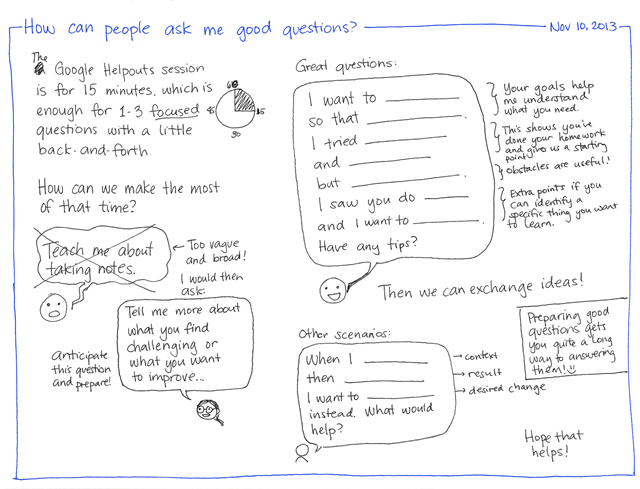 How can people ask me good questions?
Nov 10, 2013
The
Google Helpouts session
is for 15 minutes, which is
enough for 1-3 focused
questions with a little
back-and-forth.
60
45
15
30
How can we make the most
of that time?
Teach me about
taking notes.
← Too vague
and broad!
I would then
ask:
Tell me more about
what you find
challenging or
what you want
to improve...
anticipate
this question
and prepare!
Great questions:
I want to
so that
I tried
and
but
I saw you do
and I want to
Have any tips?
Your goals help
me understand
what you need.
This shows you've
done your homework
and gives us a starting
point
Obstacles are useful!
Extra points if you
can identify a
specific thing you want
to learn.
Then we can exchange ideas!
Other scenarios:
When I
then
I want to
instead. What would
help?
→ context
→ result
→ desired change
Preparing good
questions gets
you quite a long
way to answering
them!
Hope that
helps!